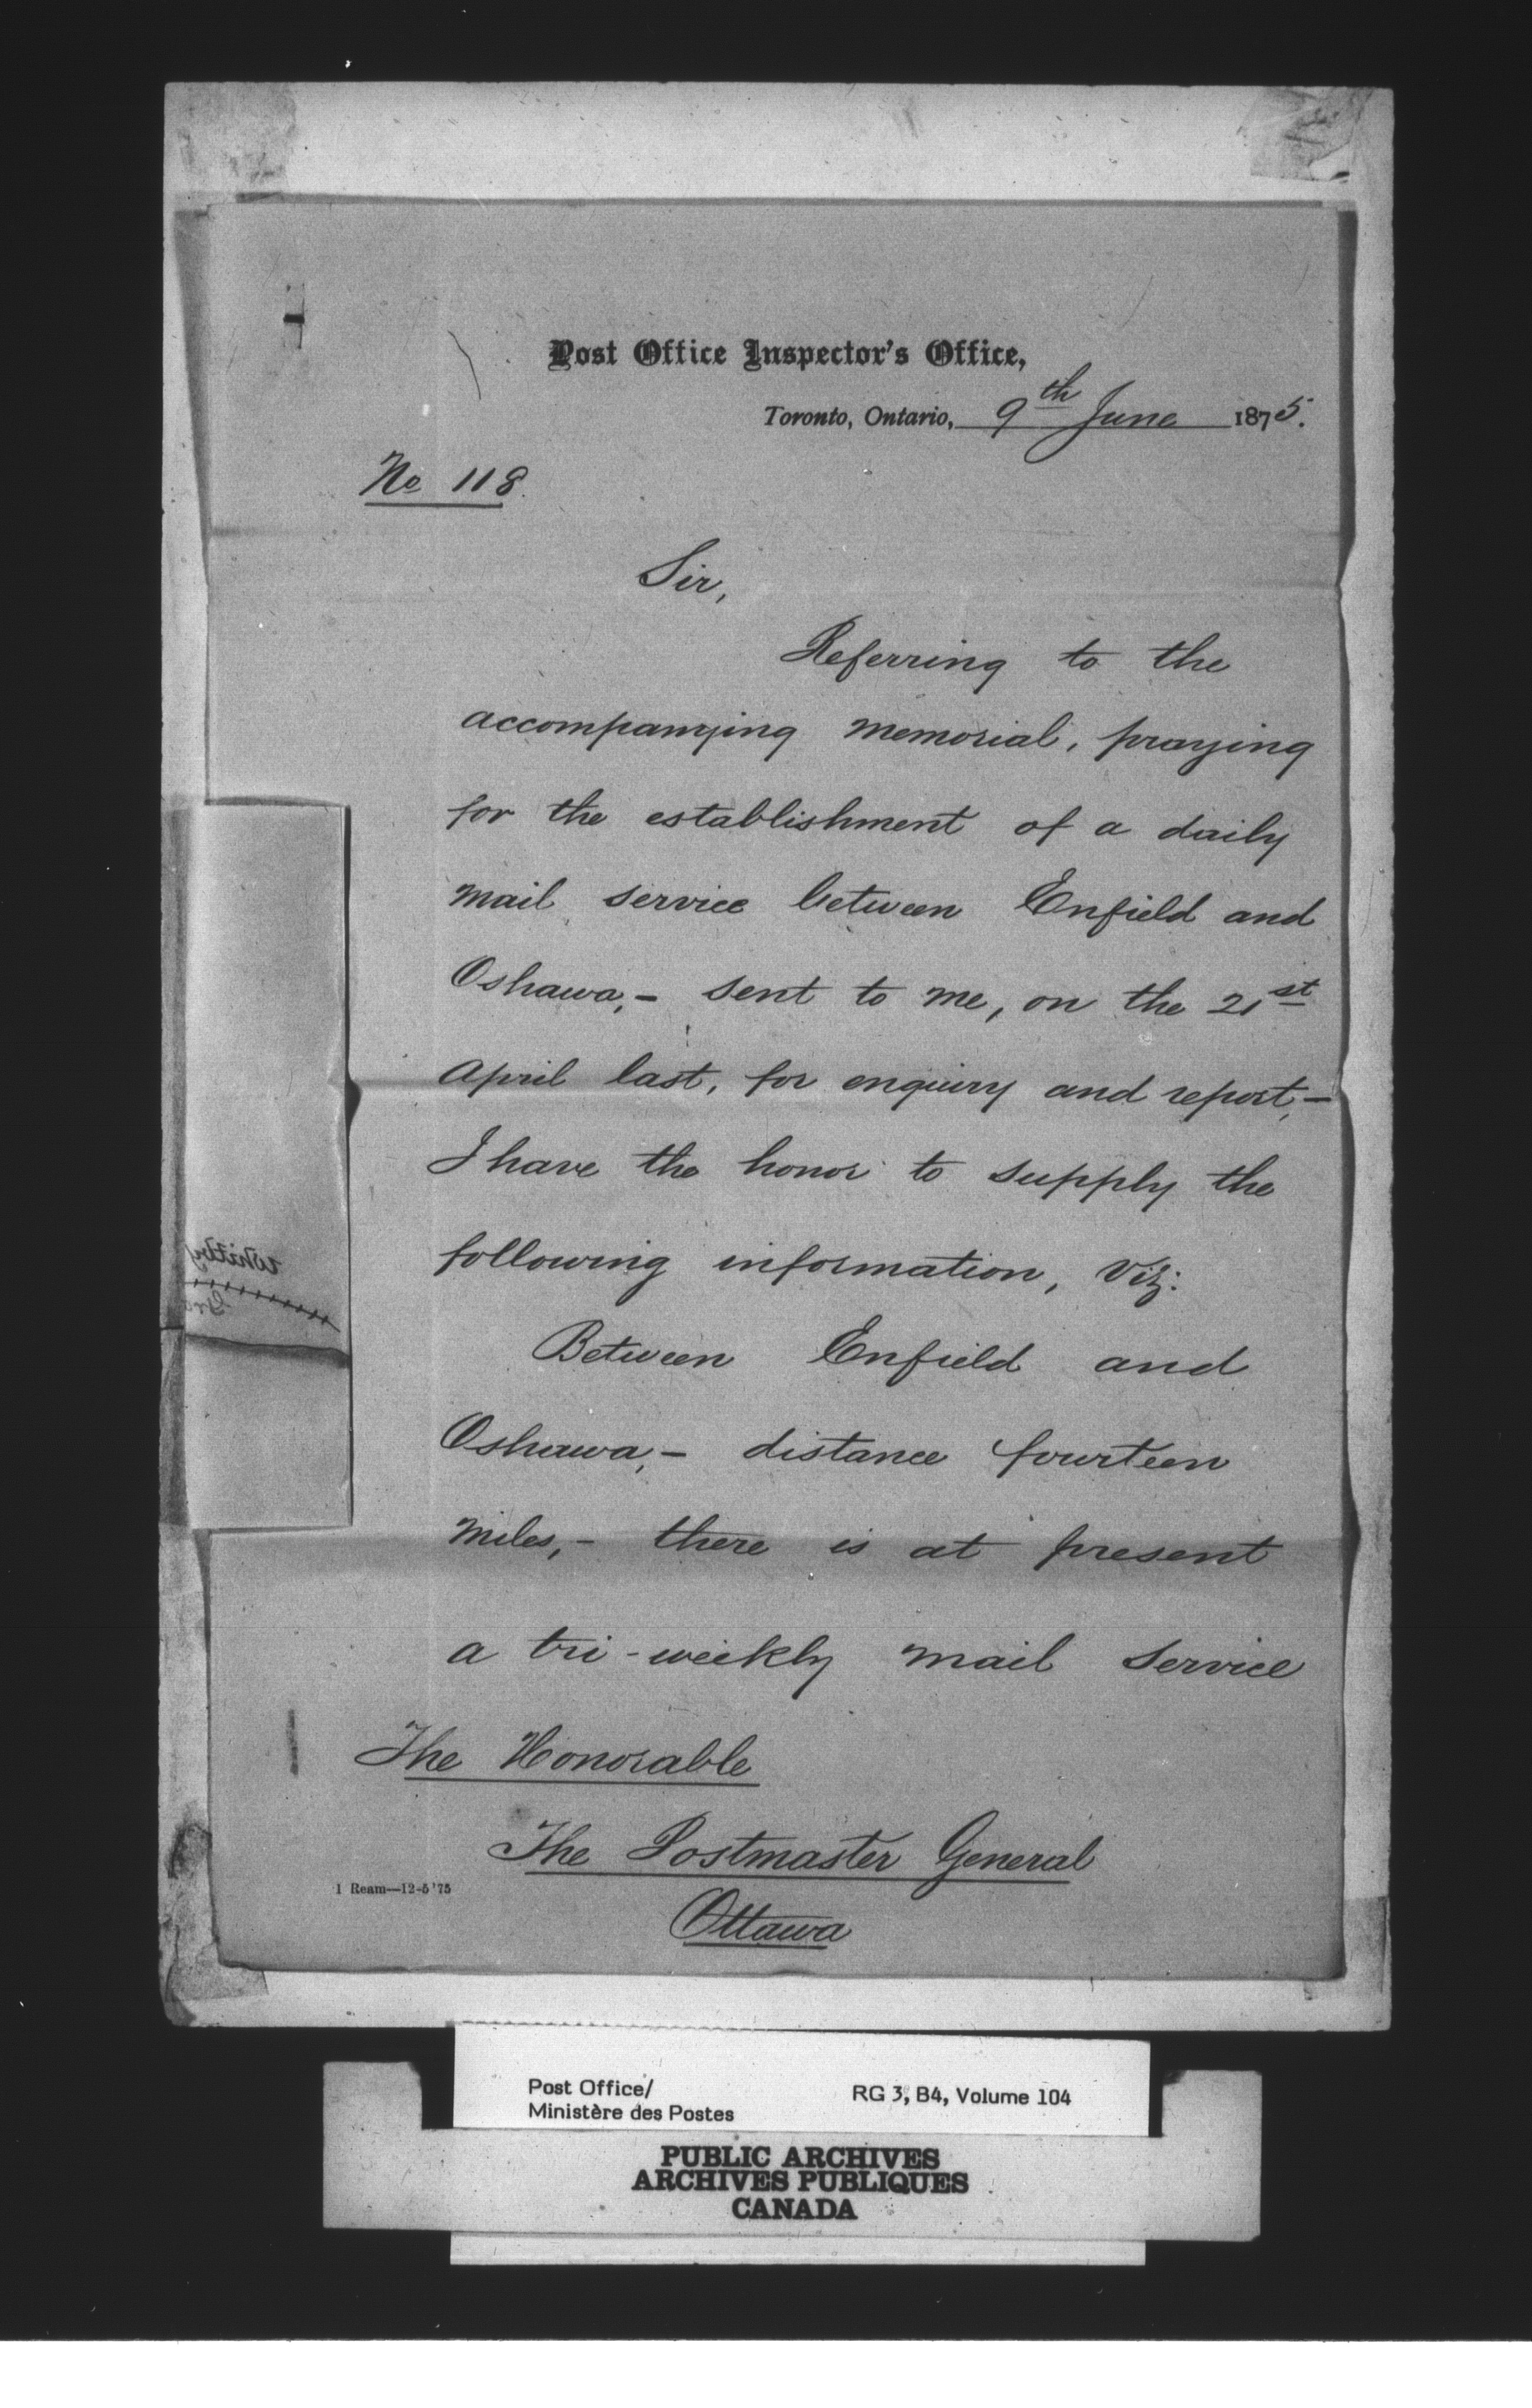 Post Office Inspector's Office,
Toronto, Ontario, 9th June 1875.
No 118.
Sir,
Referring to the
accompanying memorial, praying
for the establishment of a daily
mail service between Enfield and
Oshawa,- sent to me, on the 21st
April last, for enquiry and report,-
I have the honor to supply the
following information, Viz:
Between Enfield and
Oshawa,- distance fourteen
miles,- there is at present
a tri-weekly mail service
The Honorable
The Postmaster General
Ottawa
1 Ream—12-5'75
Whitby
Post Office/
Ministère des Postes
RG 3, B4, Volume 104
PUBLIC ARCHIVES
ARCHIVES PUBLIQUES
CANADA